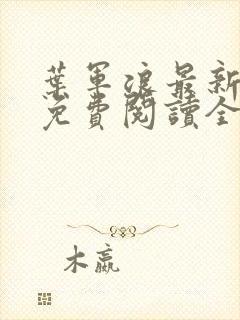 葉軍浪最新
免費閱讀全
木嬴